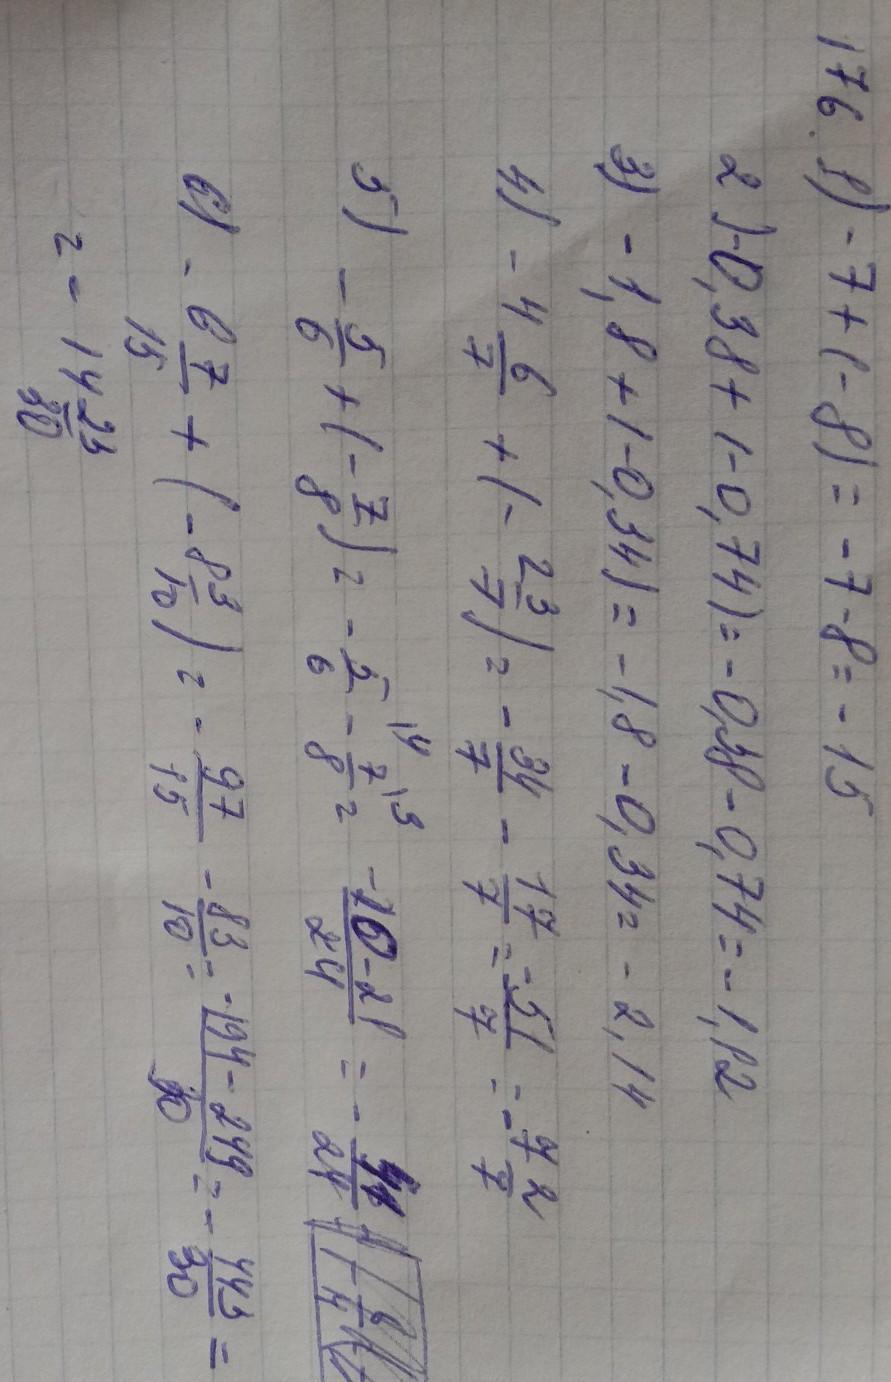 176. 1) -7+(-8)=-7-8=-15
2) -0,38+(-0,74)=-0,38-0,74=-1,12
3) -1,8+(-0,34)=-1,8-0,34=-2,14
4) -4 6/7 + (-2 3/7) = -34/7 - 17/7 = -51/7 = -7 2/7
5) -5/6 + (-7/8) = -5/6 - 7/8 = -20-21/24 = -41/24
6) -6 7/15 + (-8 3/10) = -97/15 - 83/10 = -194-249/30 = -443/30 =
= -14 23/30